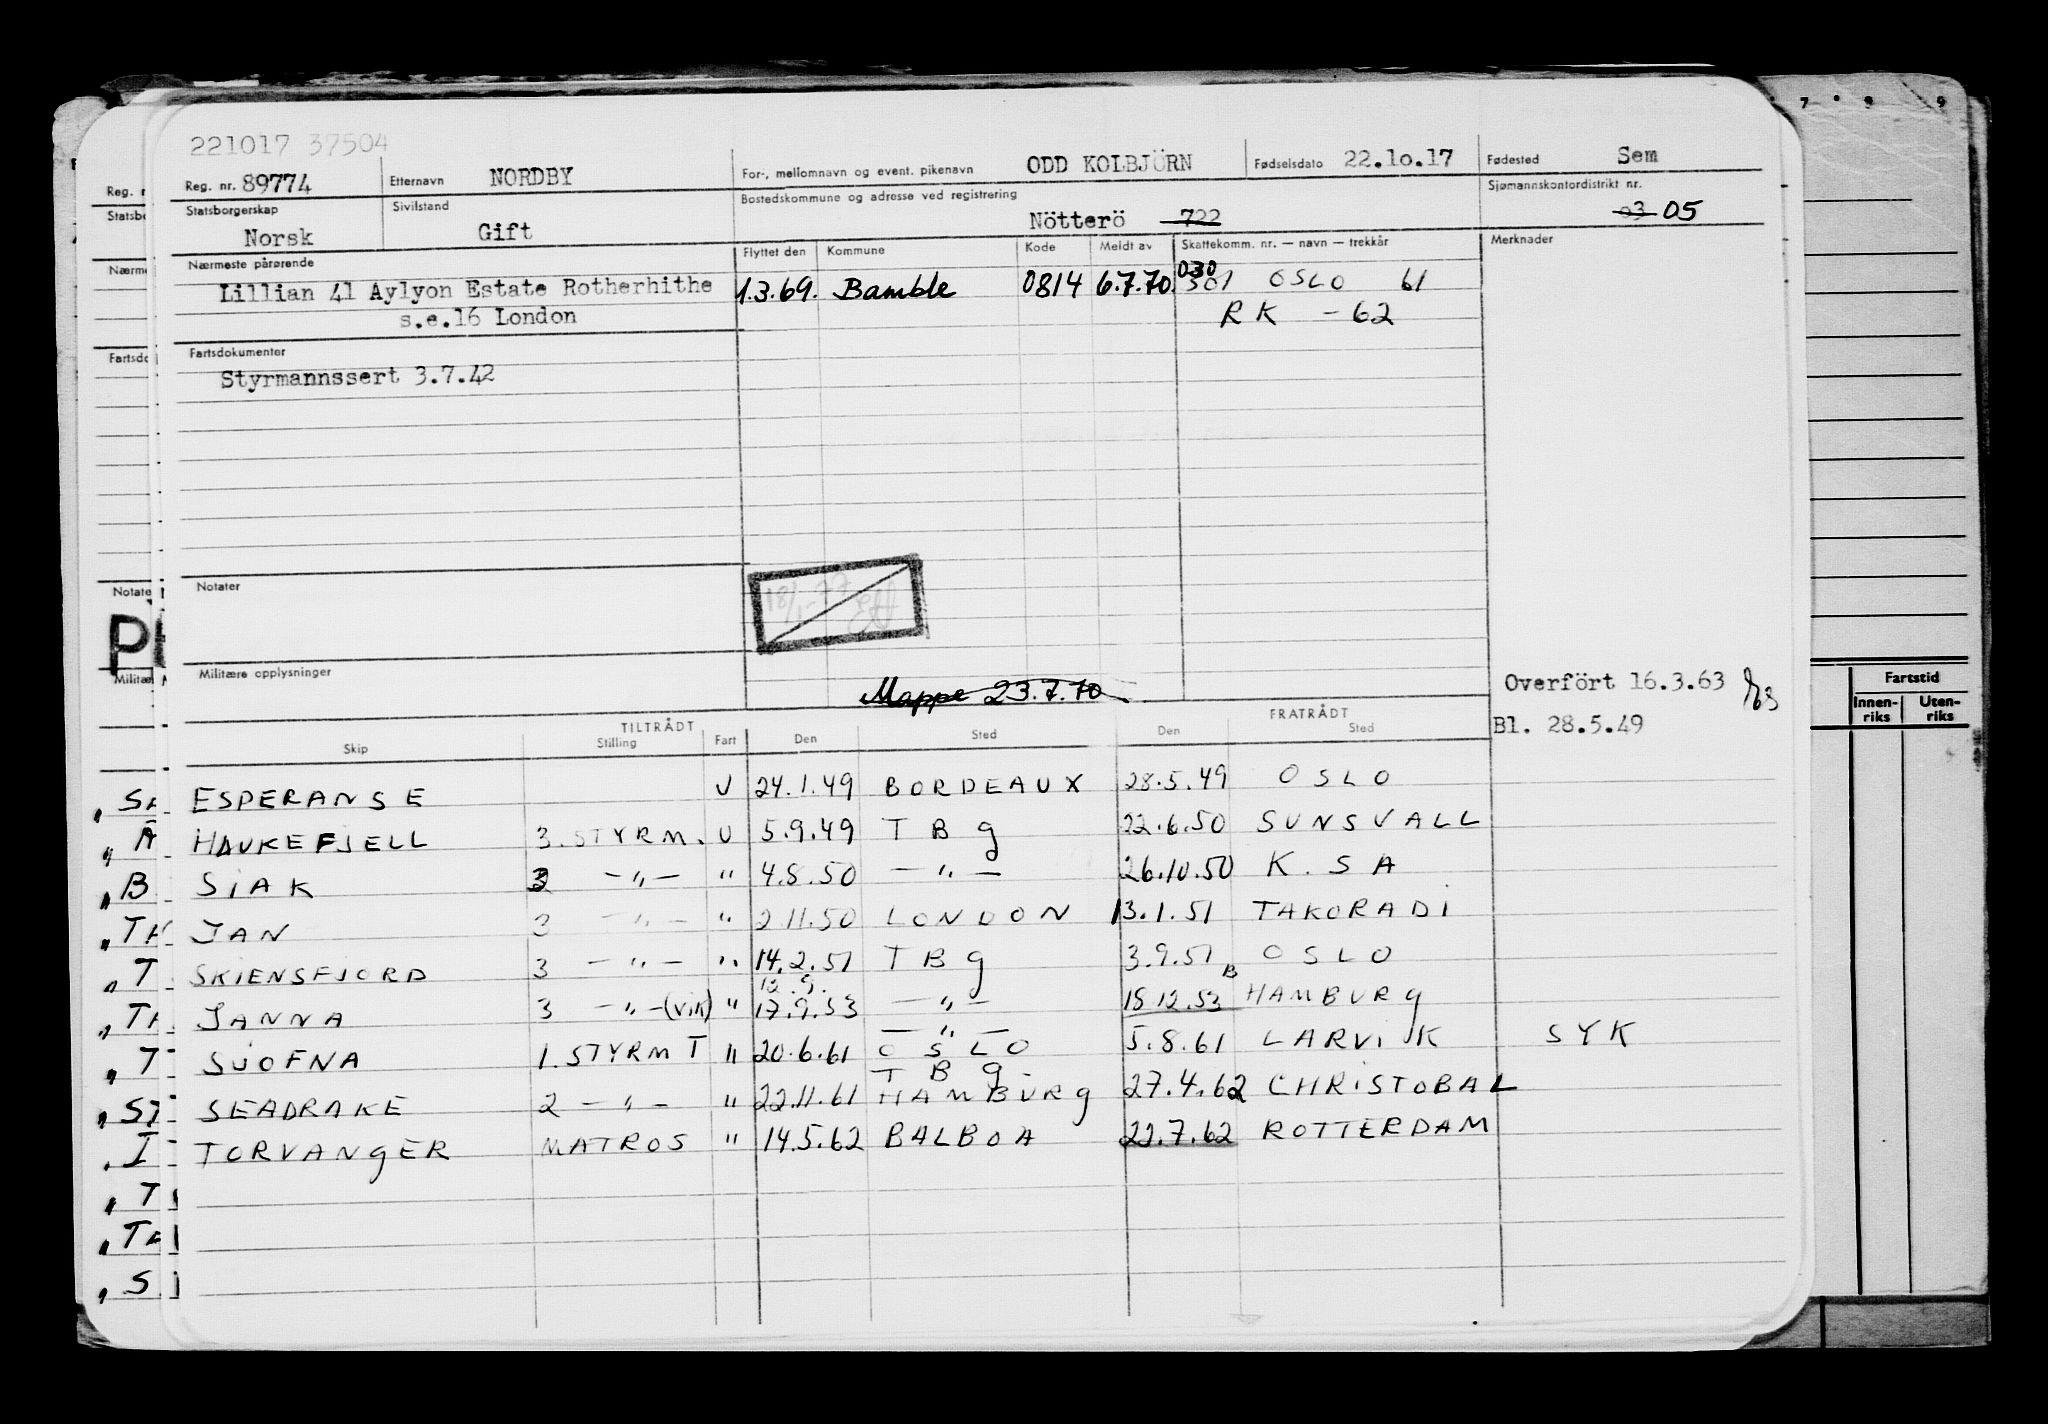 221017 37504
Reg. nr. 89774 Etternavn NORDBY For-, mellomnavn og event. pikenavn ODD KOLBJÖRN Fødselsdato 22.10.17 Fødested Sem
Statsborgerskap Norsk Sivilstand Gift Bostedskommune og adresse ved registrering Nötterö 722 Sjømannskontordistrikt nr. 03 05
Nærmeste pårørende Flyttet den Kommune Kode Meldt av Skattekomm. nr. — navn — trekkår Merknader
Lillian 41 Aylyon Estate Rotherhithe 1.3.69. Bamble 0814 6.7.70. 030 301 OSLO 61
s.e.16 London RK - 62
Fartsdokumenter
Styrmannssert 3.7.42
Notater
Militære opplysninger
Mappe 23.7.70
Overført 16.3.63
Bl. 28.5.49
TILTRÅDT FRATRÅDT
Skip Stilling Fart Den Sted Den Sted
ESPERANSE U 24.1.49 BORDEAUX 28.5.49 OSLO
HAUKEFJELL 3. STYRM. U 5.9.49 TBg 22.6.50 SUNSVALL
SIAK 3 -"- " 4.8.50 -"- 26.10.50 K.SA
JAN 3 -"- " 2.11.50 LONDON 13.1.51 TAKORADI
SKIENSFJORD 3 -"- " 14.2.51 TBg 3.9.51 OSLO
JANNA 3 -"- (vik) " 17.9.53 -"- 18.12.53 HAMBURG
SJOFNA 1. STYRM T " 20.6.61 OSLO 5.8.61 LARVIK SYK
SEADRAKE 2 -"- " 22.11.61 HAMBURG 27.4.62 CHRISTOBAL
TORVANGER MATROS " 14.5.62 BALBOA 22.7.62 ROTTERDAM
Fartstid
Innen-riks Uten-riks